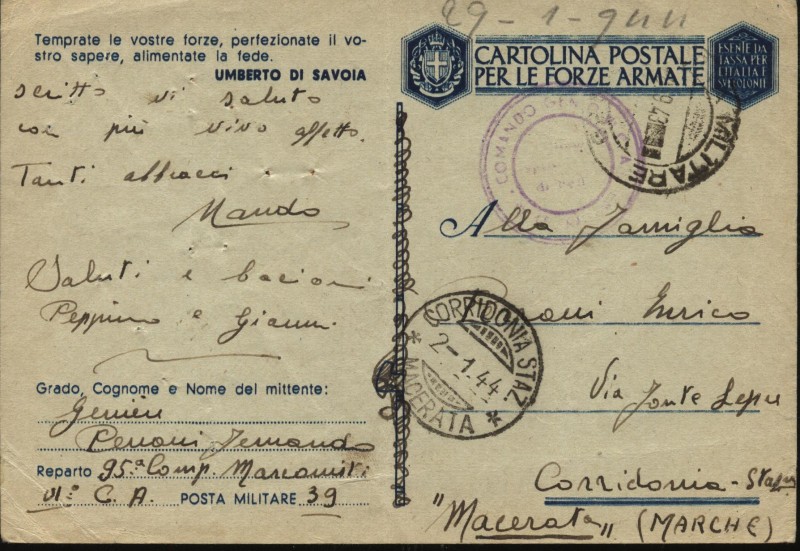 29-1-944
Temprate le vostre forze, perfezionate il vo-
stro sapere, alimentate la fede.
UMBERTO DI SAVOIA
scritto vi saluto
con più vivo affetto.
Tanti abbracci
Nando
Saluti e bacioni
Peppino e Gianni
Grado, Cognome e Nome del mittente:
Geniere
Fernando
Reparto 95ª Comp. Marconisti
VI° C. A. POSTA MILITARE 39
CARTOLINA POSTALE
PER LE FORZE ARMATE
ESENTE DA
TASSA PER
L'ITALIA E
SUE COLONIE
COMANDO
MILITARE
Alla Famiglia
Enrico
CORRIDONIA STAZ.
2-1.44
* MACERATA *
Via Fonte
Corridonia-
"Macerata" (MARCHE)